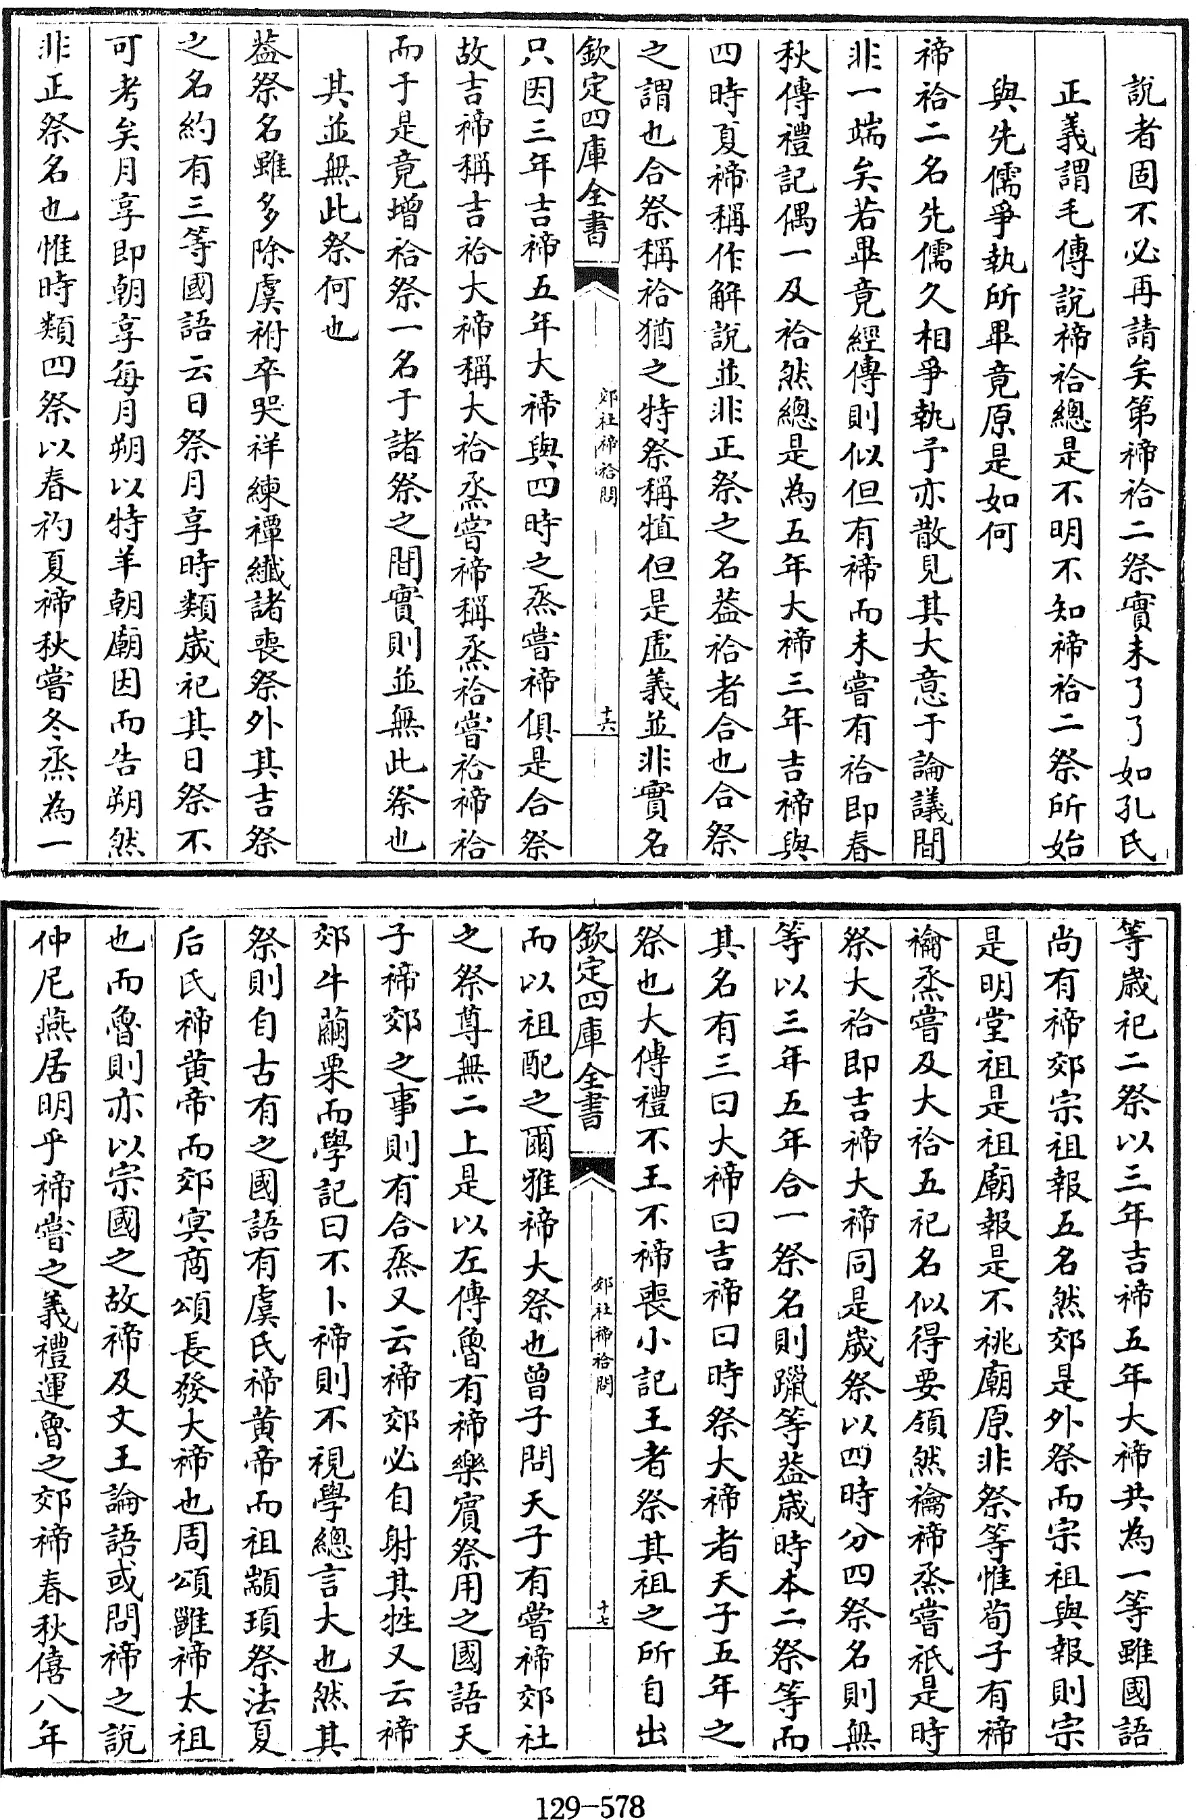 說者固不必再請矣第禘祫二祭實未了了如孔氏
正義謂毛傳說禘祫總是不明不知禘祫二祭所始
與先儒爭執所畢竟原是如何
禘祫二名先儒久相爭執予亦散見其大意于論議間
非一端矣若畢竟經傳則似但有禘而未嘗有祫即春
秋傳禮記偶一及祫然總是為五年大禘三年吉禘與
四時夏禘稱作解說並非正祭之名葢祫者合也合祭
之謂也合祭稱祫猶之特祭稱犆但是虛義並非實名
欽定四庫全書
郊社禘祫問
十六
只因三年吉禘五年大禘與四時之烝嘗禘俱是合祭
故吉禘稱吉祫大禘稱大祫烝嘗禘稱烝祫嘗祫禘祫
而于是竟增祫祭一名于諸祭之間實則並無此祭也
其並無此祭何也
葢祭名雖多除虞祔卒哭祥練禫纖諸喪祭外其吉祭
之名約有三等國語云日祭月享時類歲祀其日祭不
可考矣月享即朝享每月朔以特羊朝廟因而告朔然
非正祭名也惟時類四祭以春礿夏禘秋嘗冬烝為一
等歲祀二祭以三年吉禘五年大禘共為一等雖國語
尚有禘郊宗祖報五名然郊是外祭而宗祖與報則宗
是明堂祖是祖廟報是不祧廟原非祭等惟荀子有禘
禴烝嘗及大祫五祀名似得要領然禴禘烝嘗祇是時
祭大祫即吉禘大禘同是歲祭以四時分四祭名則無
等以三年五年合一祭名則躐等葢歲時本二祭等而
其名有三曰大禘曰吉禘曰時祭大禘者天子五年之
祭也大傳禮不王不禘喪小記王者祭其祖之所自出
欽定四庫全書
郊社禘祫問
十七
而以祖配之爾雅禘大祭也曾子問天子有嘗禘郊社
之祭尊無二上是以左傳魯有禘樂賓祭用之國語天
子禘郊之事則有合烝又云禘郊必自射其牲又云禘
郊牛繭栗而學記曰不卜禘則不視學總言大也然其
祭則自古有之國語有虞氏禘黄帝而祖顓頊祭法夏
后氏禘黄帝而郊冥商頌長發大禘也周頌雝禘太祖
也而魯則亦以宗國之故禘及文王論語或問禘之說
仲尼燕居明乎禘嘗之義禮運魯之郊禘春秋僖八年
129-578